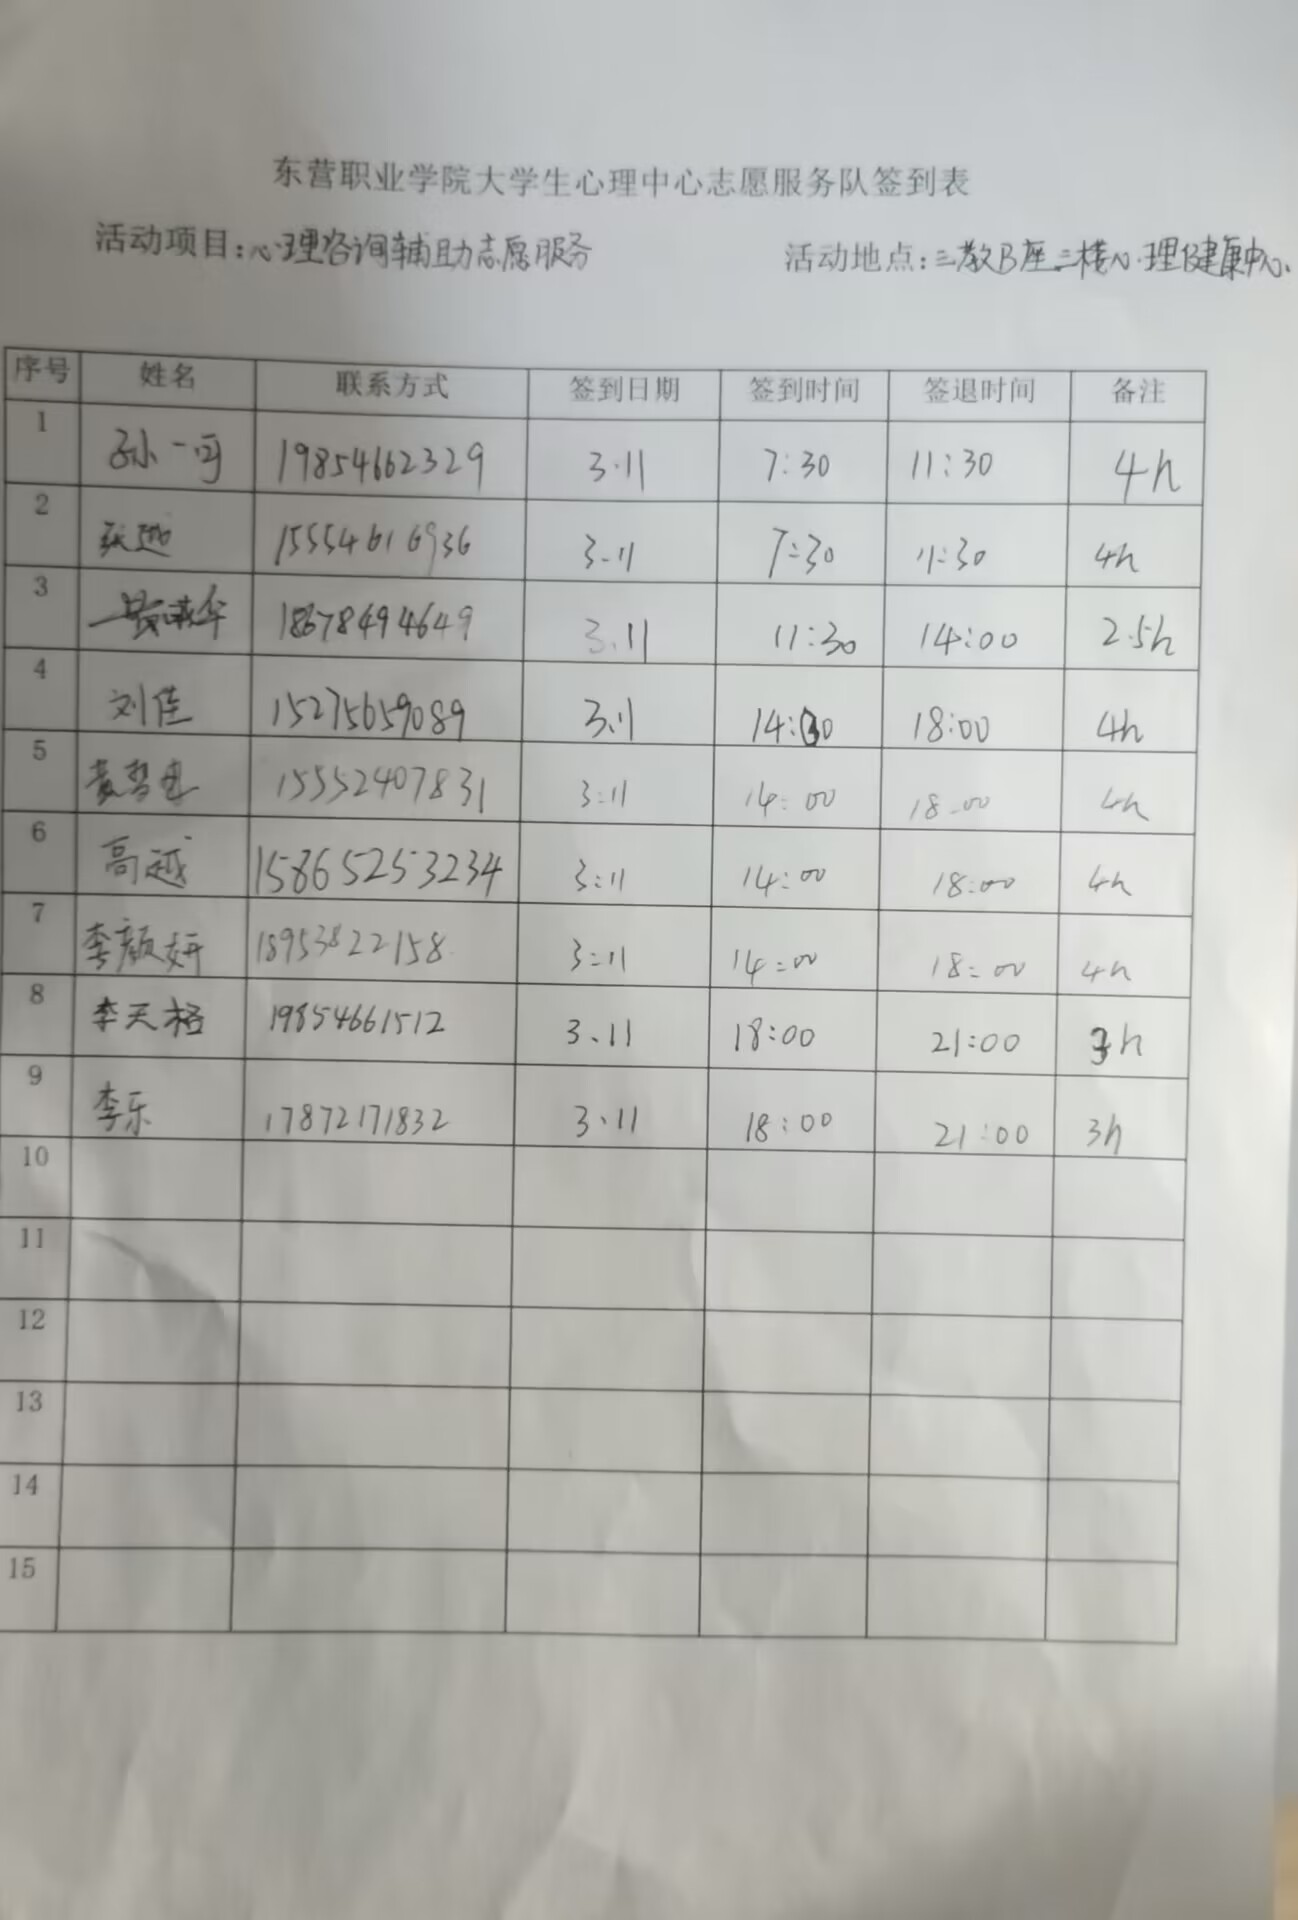 东营职业学院大学生心理中心志愿服务队签到表
活动项目:心理咨询辅助志愿服务 活动地点:三教B座二楼心理健康中心.
序号 姓名 联系方式 签到日期 签到时间 签退时间 备注
1 孙一可 19854662329 3.11 7:30 11:30 4h
2 15554616936 3.11 7:30 11:30 4h
3 18678494649 3.11 11:30 14:00 2.5h
4 刘佳 15275659089 3.11 14:00 18:00 4h
5 15552407831 3:11 14:00 18:00 4h
6 高越 15865253234 3:11 14:00 18:00 4h
7 李颜妍 18953822158 3:11 14:00 18:00 4h
8 李天格 19854661512 3.11 18:00 21:00 3h
9 李乐 17872171832 3.11 18:00 21:00 3h
10
11
12
13
14
15